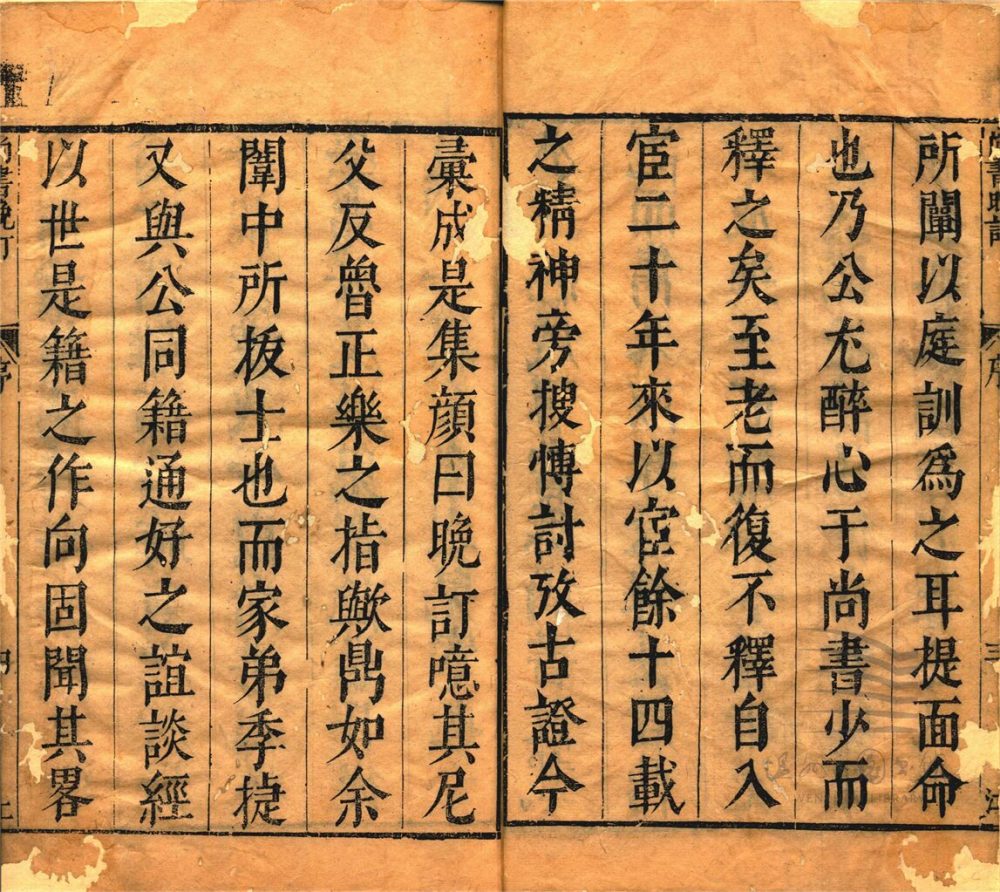 所闡以庭訓爲之耳提面命
也乃公尤醉心于尚書少而
釋之矣至老而復不釋自入
宦二十年來以宦餘十四載
之精神旁搜博討攷古證今
彙成是集顏曰晚訂噫其尼
父反魯正樂之指歟鼎如余
闈中所拔士也而家弟季捷
又與公同籍通好之誼談經
以世是籍之作向固聞其畧
尚書晚訂
序